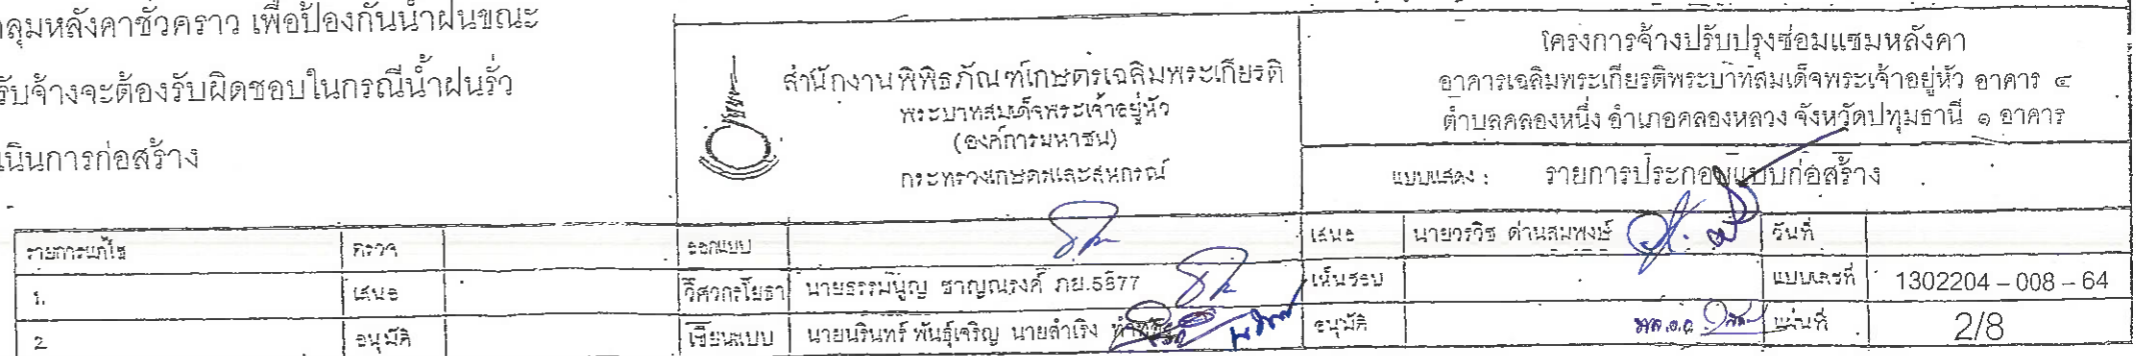 ลุมหลังคาชั่วคราว เพื่อป้องกันน้ำฝนขณะ
รับจ้างจะต้องรับผิดชอบในกรณีน้ำฝนรั่ว
เนินการก่อสร้าง
สำนักงานพิพิธภัณฑ์เกษตรเฉลิมพระเกียรติ
พระบาทสมเด็จพระเจ้าอยู่หัว
(องค์การมหาชน)
กระทรวงเกษตรและสหกรณ์
โครงการจ้างปรับปรุงซ่อมแซมหลังคา
อาคารเฉลิมพระเกียรติพระบาทสมเด็จพระเจ้าอยู่หัว อาคาร ๔
ตำบลคลองหนึ่ง อำเภอคลองหลวง จังหวัดปทุมธานี ๑ อาคาร
แบบแสดง : รายการประกอบแบบก่อสร้าง
รายการแก้ไข ตรวจ ออกแบบ เสนอ นายวรวิธ ด่านสมพงษ์ วันที่
1. เสนอ วิศวกรโยธา นายธรรมนูญ ชาญณรงค์ ภย.5877 เห็นชอบ แบบเลขที่ 1302204 – 008 – 64
2 อนุมัติ เขียนแบบ นายนรินทร์ พันธุ์เจริญ นายสำเริง อนุมัติ แผ่นที่ 2/8